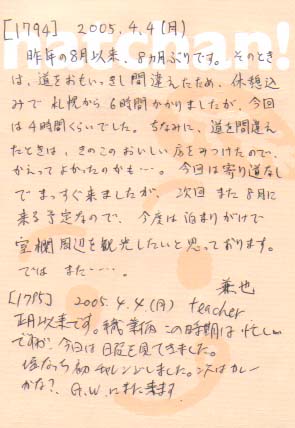 hatchan!
[1794] 2005.4.4(月)
昨年の8月以来、8ヵ月ぶりです。そのとき
は、道をおもいっきし間違えたため、休憩込
みで札幌から6時間かかりましたが、今回
は4時間くらいでした。ちなみに、道を間違え
たときは、きのこのおいしい店をみつけたので、
かえってよかったのかも…。今回は寄り道なし
でまっすぐ来ましたが、次回また8月に
来る予定なので、今度は泊まりがけで
室欄周辺を観光したいと思っております。
ではまた……
兼也
[1795] 2005.4.4.(月) teacher
正月以来です。職業柄この時期は忙しい
ですが、今回は目程を見てきました。
塩なっち初チャレンジしました。次はカレー
かな? G.W.にまた来ます